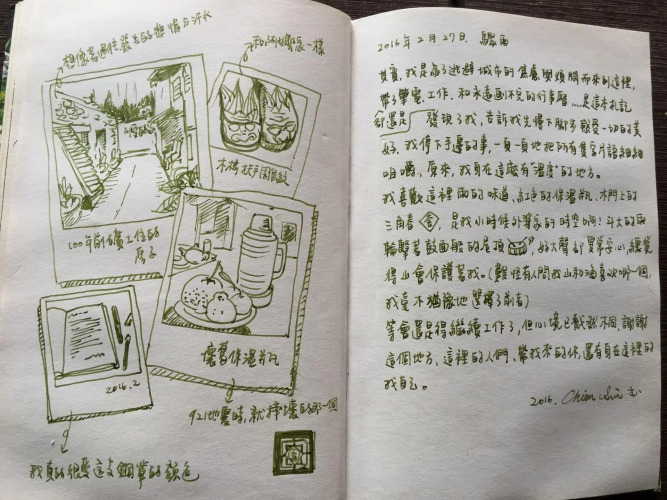 想像著過往發生的熱情與汗水
和阿嬤家一樣
木桶
100年前礦工住的
房子
懷舊保溫熱水瓶
2016.2
921地震時,就摔壞的那一個
我真的很愛這支鋼筆的顏色
2016年2月27日. 驟雨
其實,我是為了逃避城市的焦慮與煩悶而來到這裡,
帶了筆電工作、和永遠画不完的行事曆....是這本札記
發現了我、告訴我先慢下腳步感受一切的美
好,我停下手邊的事,一頁一頁地把所有隻字片語細細
咀嚼,原來,我身在這麼有"溫度"的地方。
我喜歡這裡雨的味道、紅色的保溫瓶、木門上的
三角春 舍,是我小時候外婆家的時空啊!斗大的雨
輪擊著鼓面般的屋頂 好大聲卻異常安心,總覺
得山會保護著我。(難怪有人問我山和海喜歡哪一個,
我毫不猶豫地選擇了前者)
等會還是得繼續工作了,但心境已截然不同,謝謝
這個地方、這裡的人們、帶我來的你,還有自在這裡的
我自己。
2016.